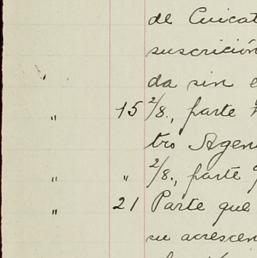 de Cuicat
suscrición
da sin e
" 15 2/8, parte
tro Agen
" " 2/8, parte
" 21 Parte que
su acrescen